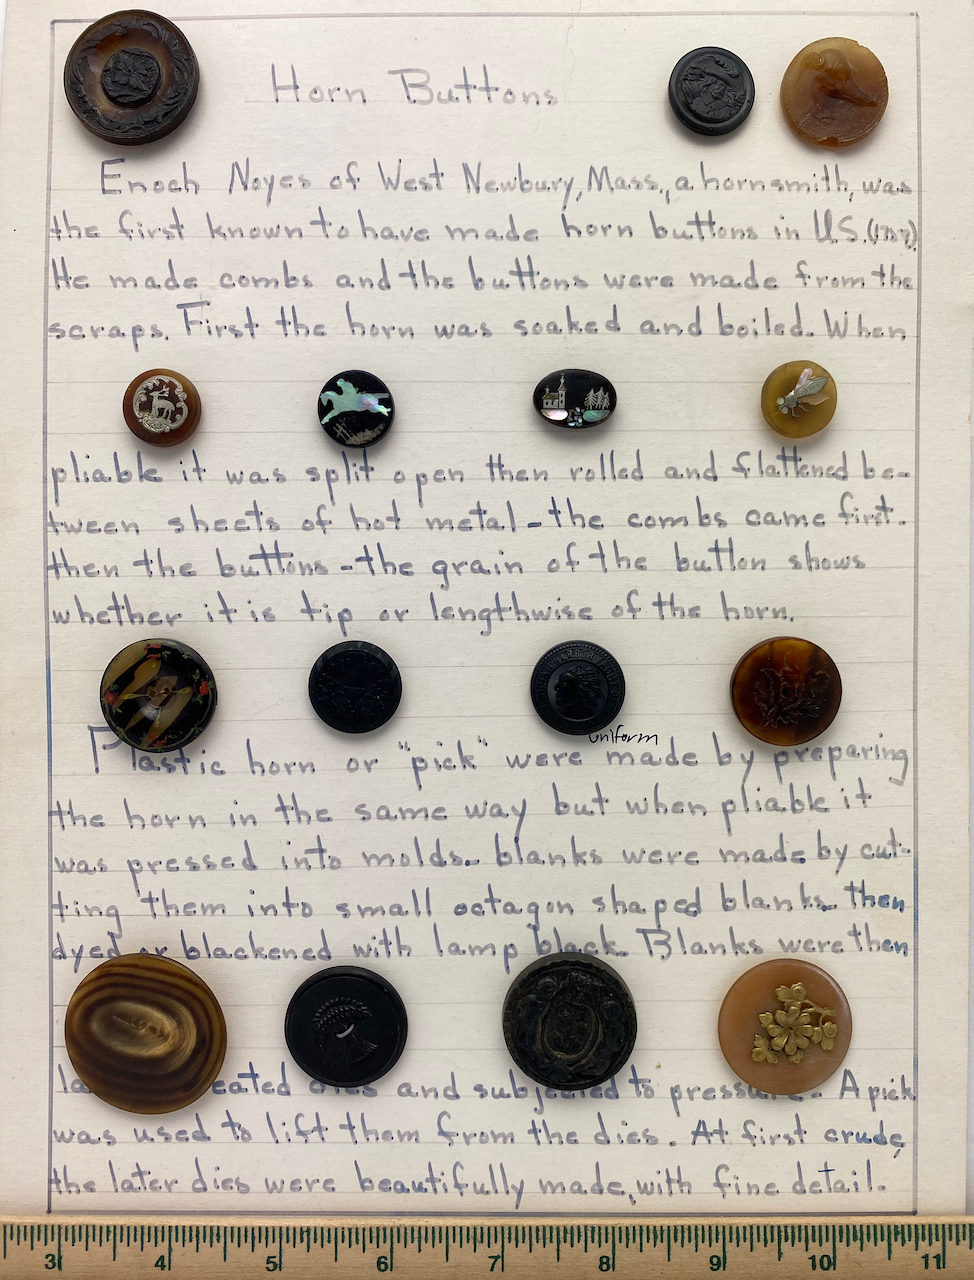 Horn Buttons
Enoch Noyes of West Newbury, Mass., a hornsmith, was
the first known to have made horn buttons in U.S.
He made combs and the buttons were made from the
scraps. First the horn was soaked and boiled. When
pliable it was split open then rolled and flattened be-
tween sheets of hot metal - the combs came first.
then the buttons - the grain of the button shows
whether it is tip or lengthwise of the horn.
uniform
Plastic horn or "pick" were made by preparing
the horn in the same way but when pliable it
was pressed into molds. blanks were made by cut-
ting them into small octagon shaped blanks. then
dyed or blackened with lamp black. Blanks were then
and subjected to A pick
was used to lift them from the dies. At first crude,
the later dies were beautifully made, with fine detail.
3 4 5 6 7 8 9 10 11